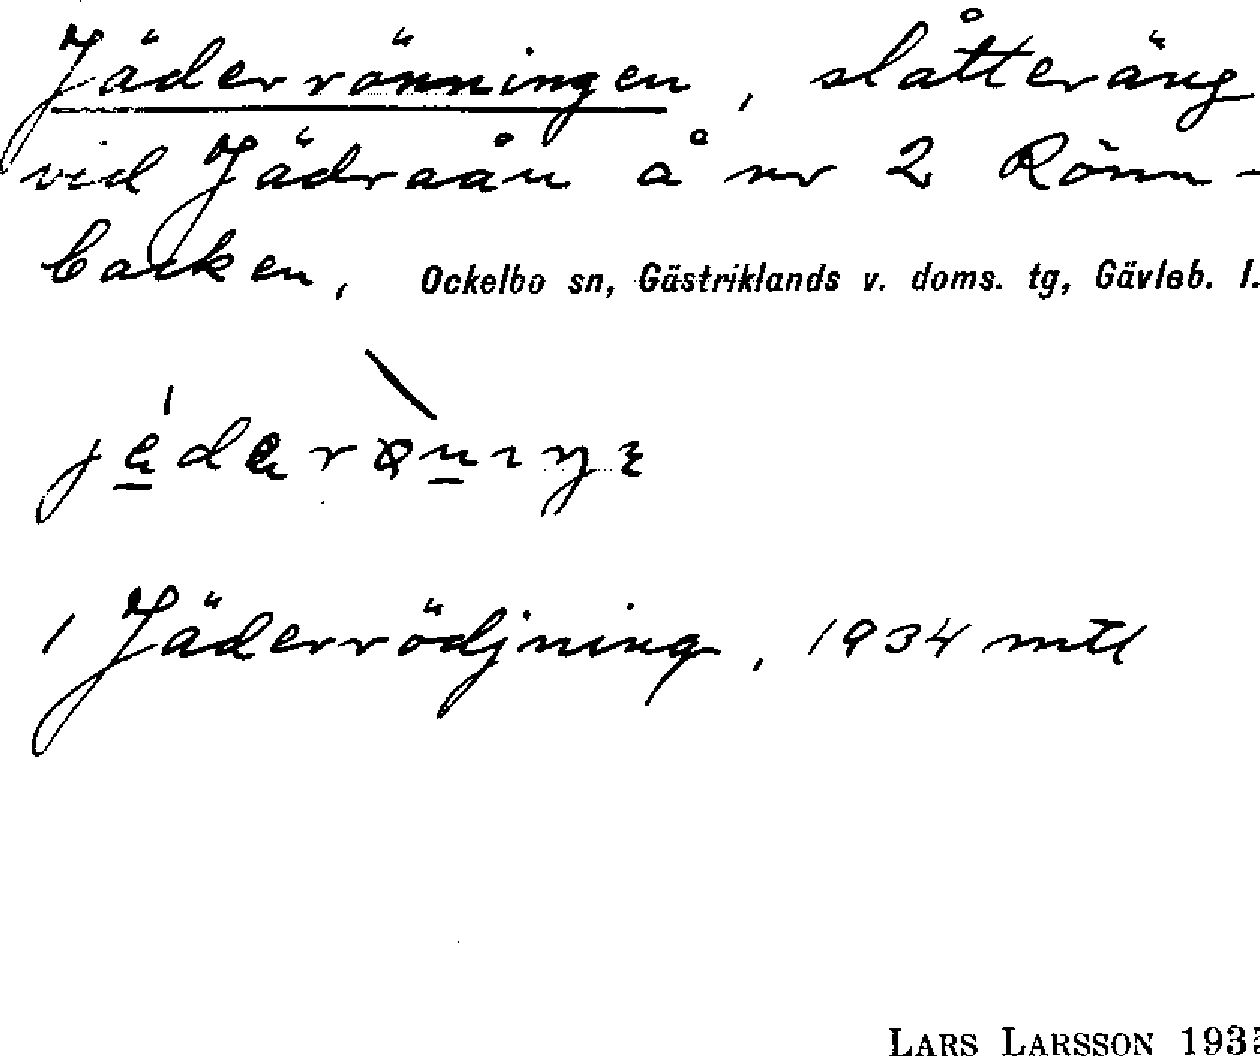 Jäderrönningen, slåtteräng
vid Jädraån å nr 2 Rönn-
backen, Ockelbo sn, Gästriklands v. doms. tg, Gävleb. l.
1 Jäderrödjning, 1934 mtl
LARS LARSSON